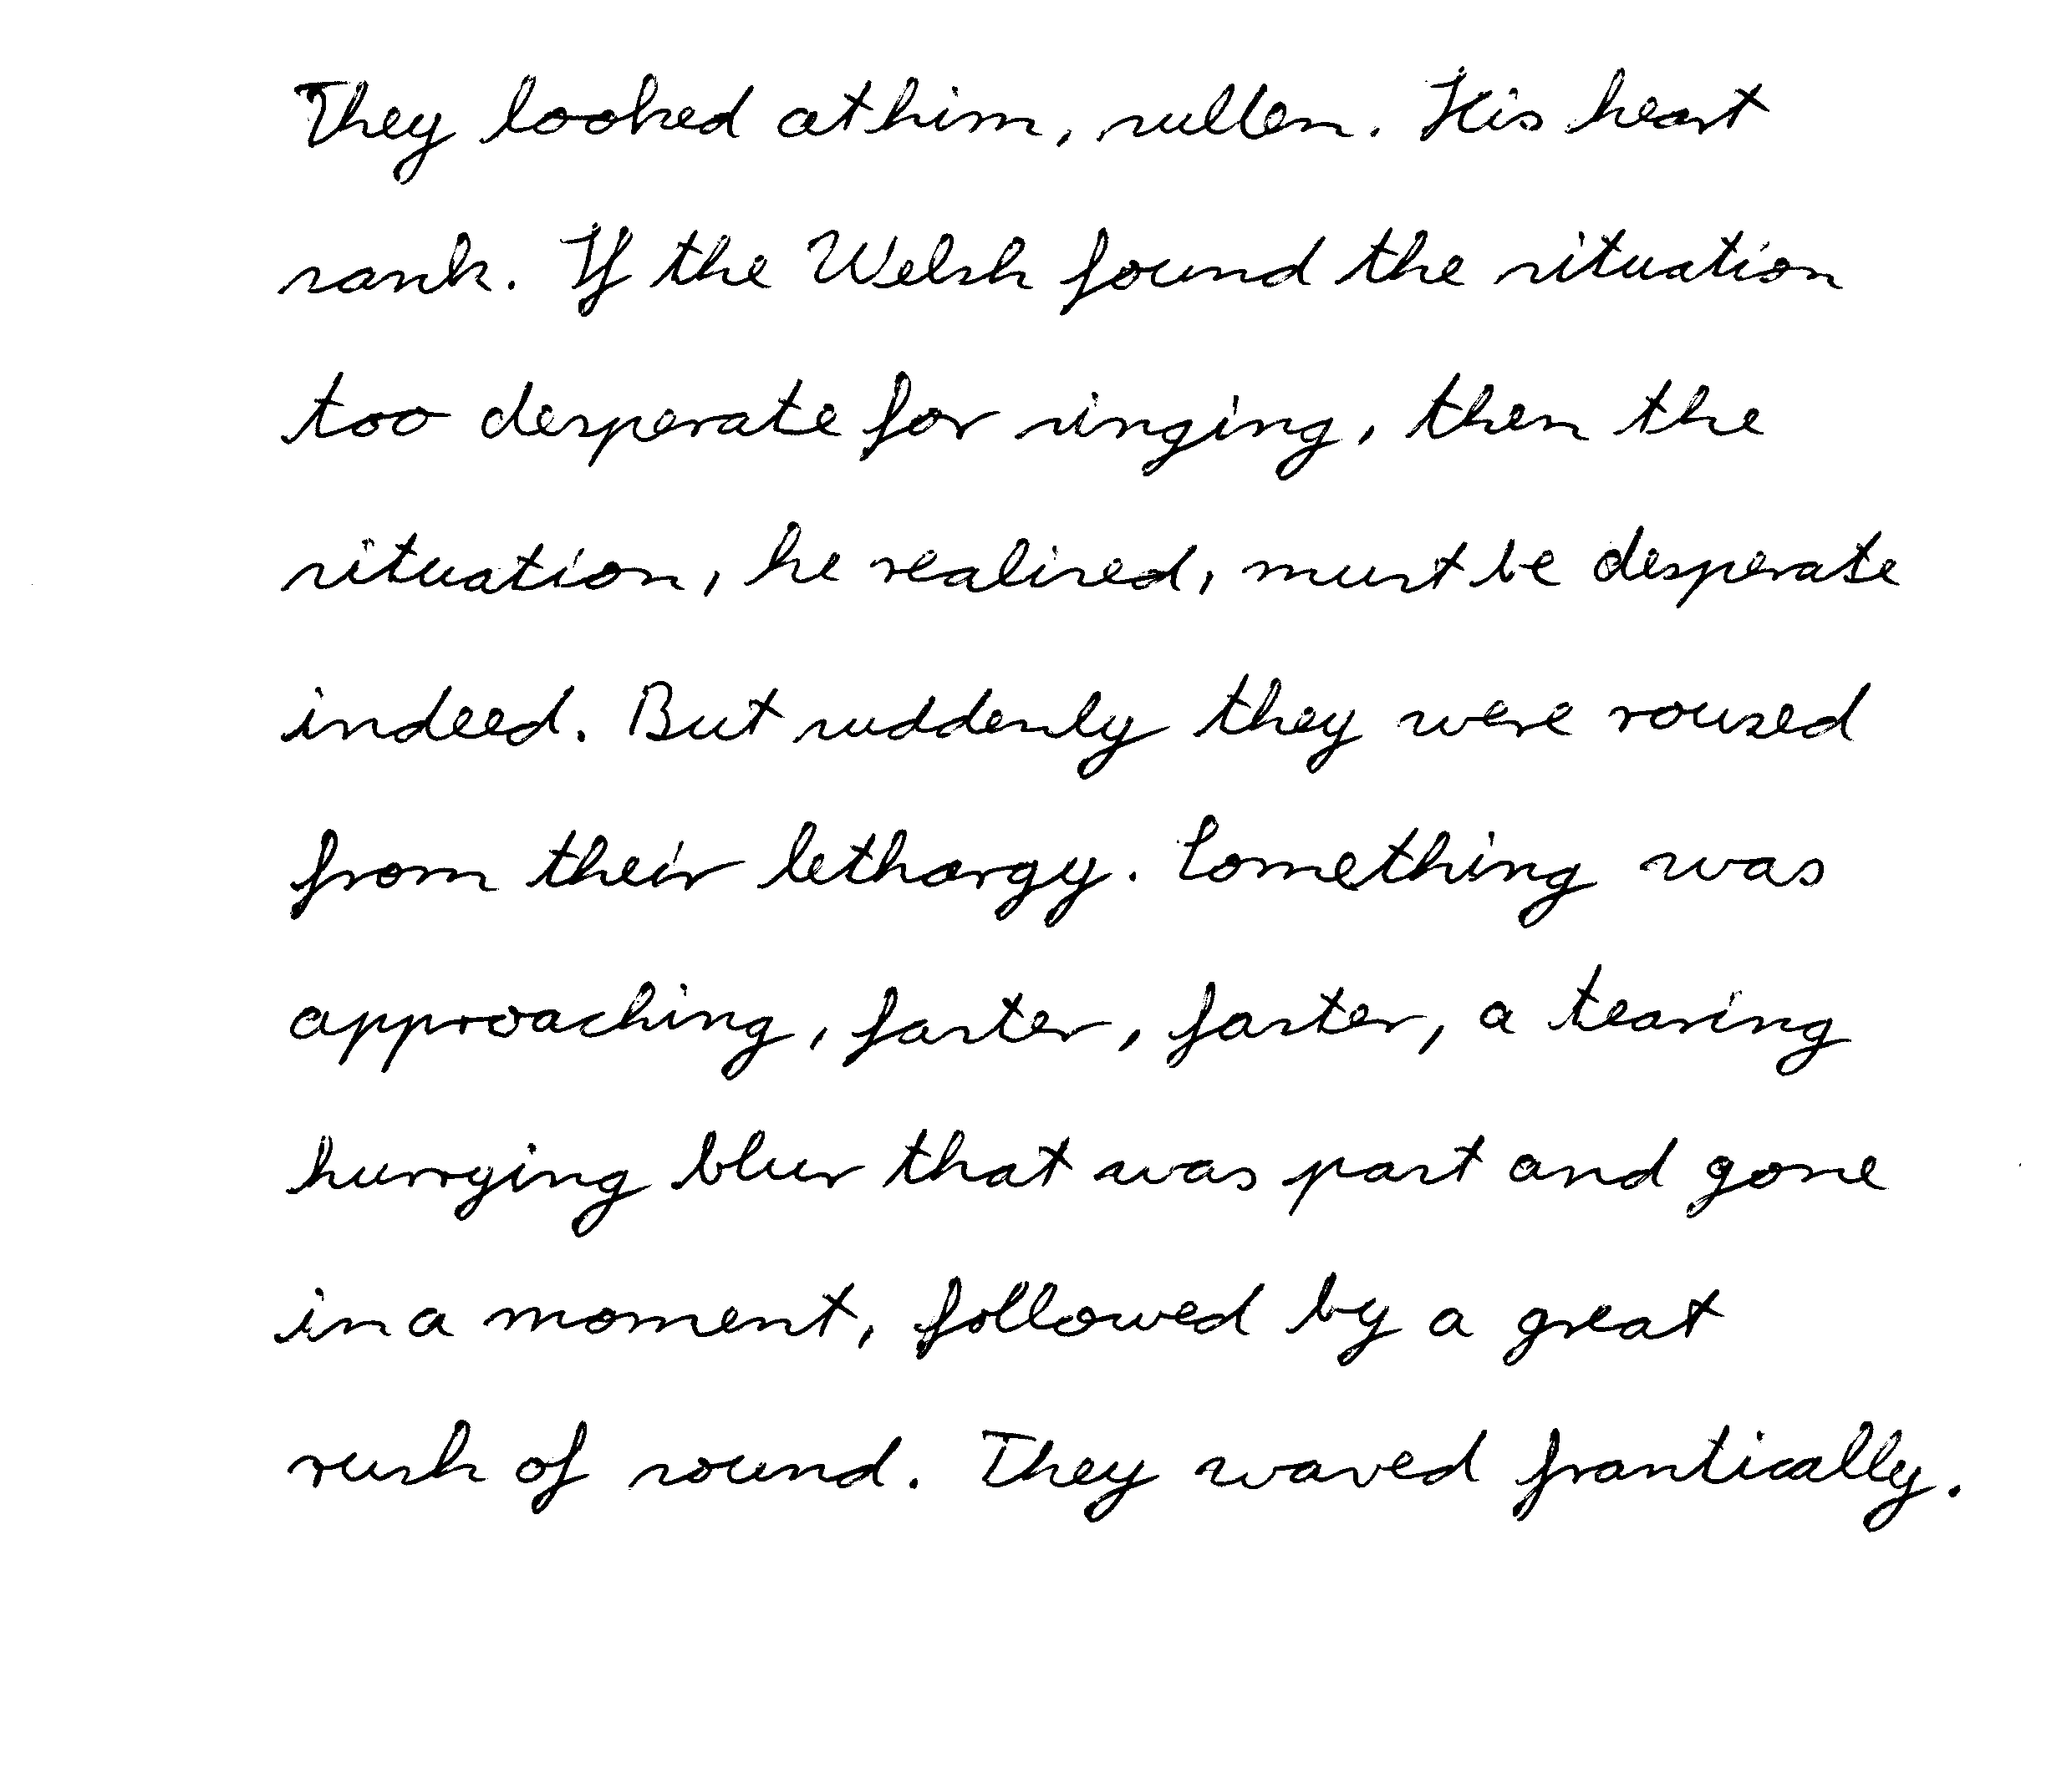 They looked at him, sullen. His heart
sank. If the Welsh found the situation
too desperate for singing, then the
situation, he realised, must be desperate
indeed. But suddenly they were roused
from their lethargy. Something was
approaching, faster, faster, a tearing
hurrying blur that was past and gone
in a moment, followed by a great
rush of sound. They waved frantically.